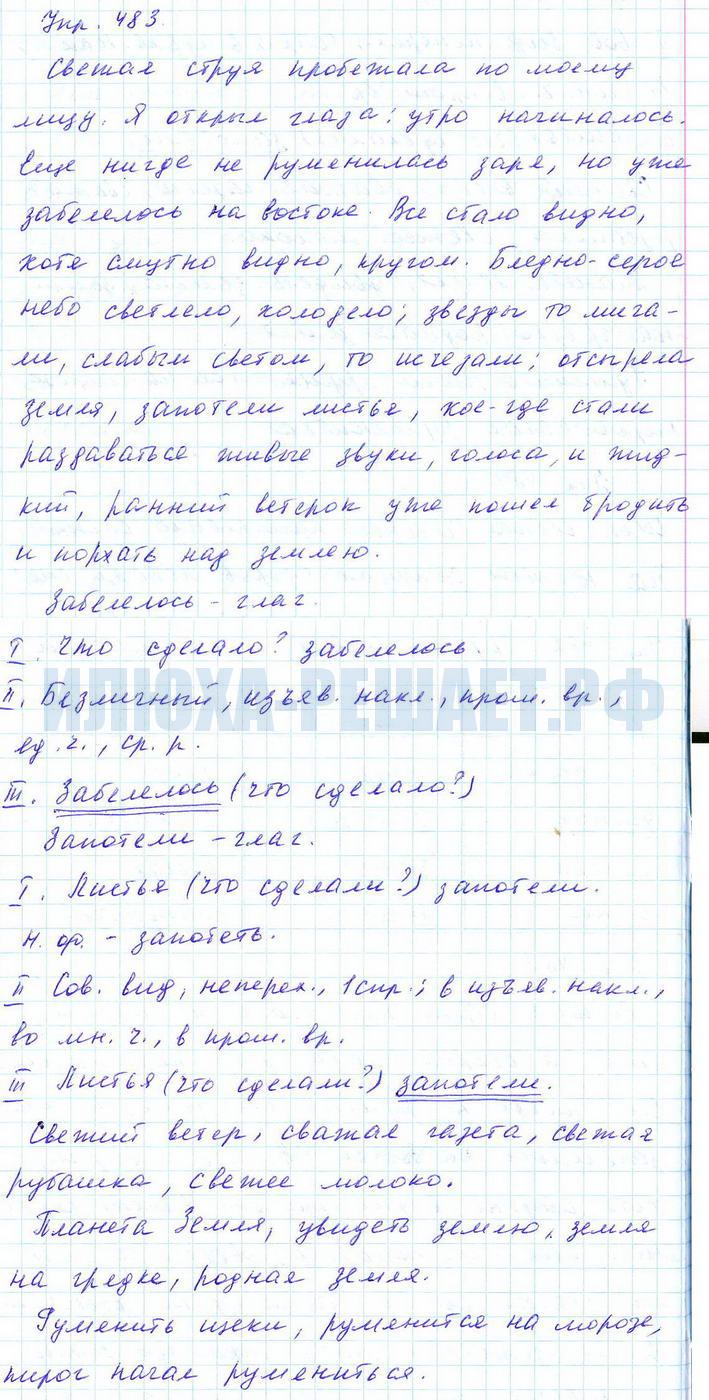 Упр. 483.
Свежая струя пробежала по моему
лицу. Я открыл глаза: утро начиналось.
Еще нигде не румянилась заря, но уже
забелелось на востоке. Все стало видно,
хотя смутно видно, кругом. Бледно-серое
небо светлело, холодело; звезды то мига-
ли, слабым светом, то исчезали; отсырела
земля, запотели листья, кое-где стали
раздаваться живые звуки, голоса, и жид-
кий, ранний ветерок уже пошел бродить
и порхать над землею.
Забелелось - глаг.
I. Что сделало? забелелось.
ИЛЮХА-РЕШАЕТ.РФ
II. Безличный, изъяв. накл., прош. вр.,
ед. ч., ср. р.
III. Забелелось (что сделало?)
Запотели - глаг.
I. Листья (что сделали?) запотели.
н. ф. - запотеть.
II Сов. вид, неперех., 1 спр.; в изъяв. накл.,
во мн. ч., в прош. вр.
III Листья (что сделали?) запотели.
Свежий ветер, сважая газета, свежая
рубашка, свежее молоко.
Планета Земля, увидеть землю, земля
на грядке, родная земля.
Румянить щеки, румянится на морозе,
пирог начал румениться.